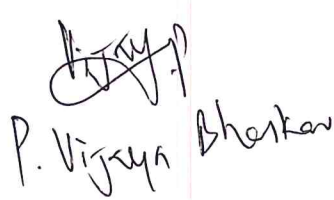 Vijay.P
P. Vijaya Bhaskar